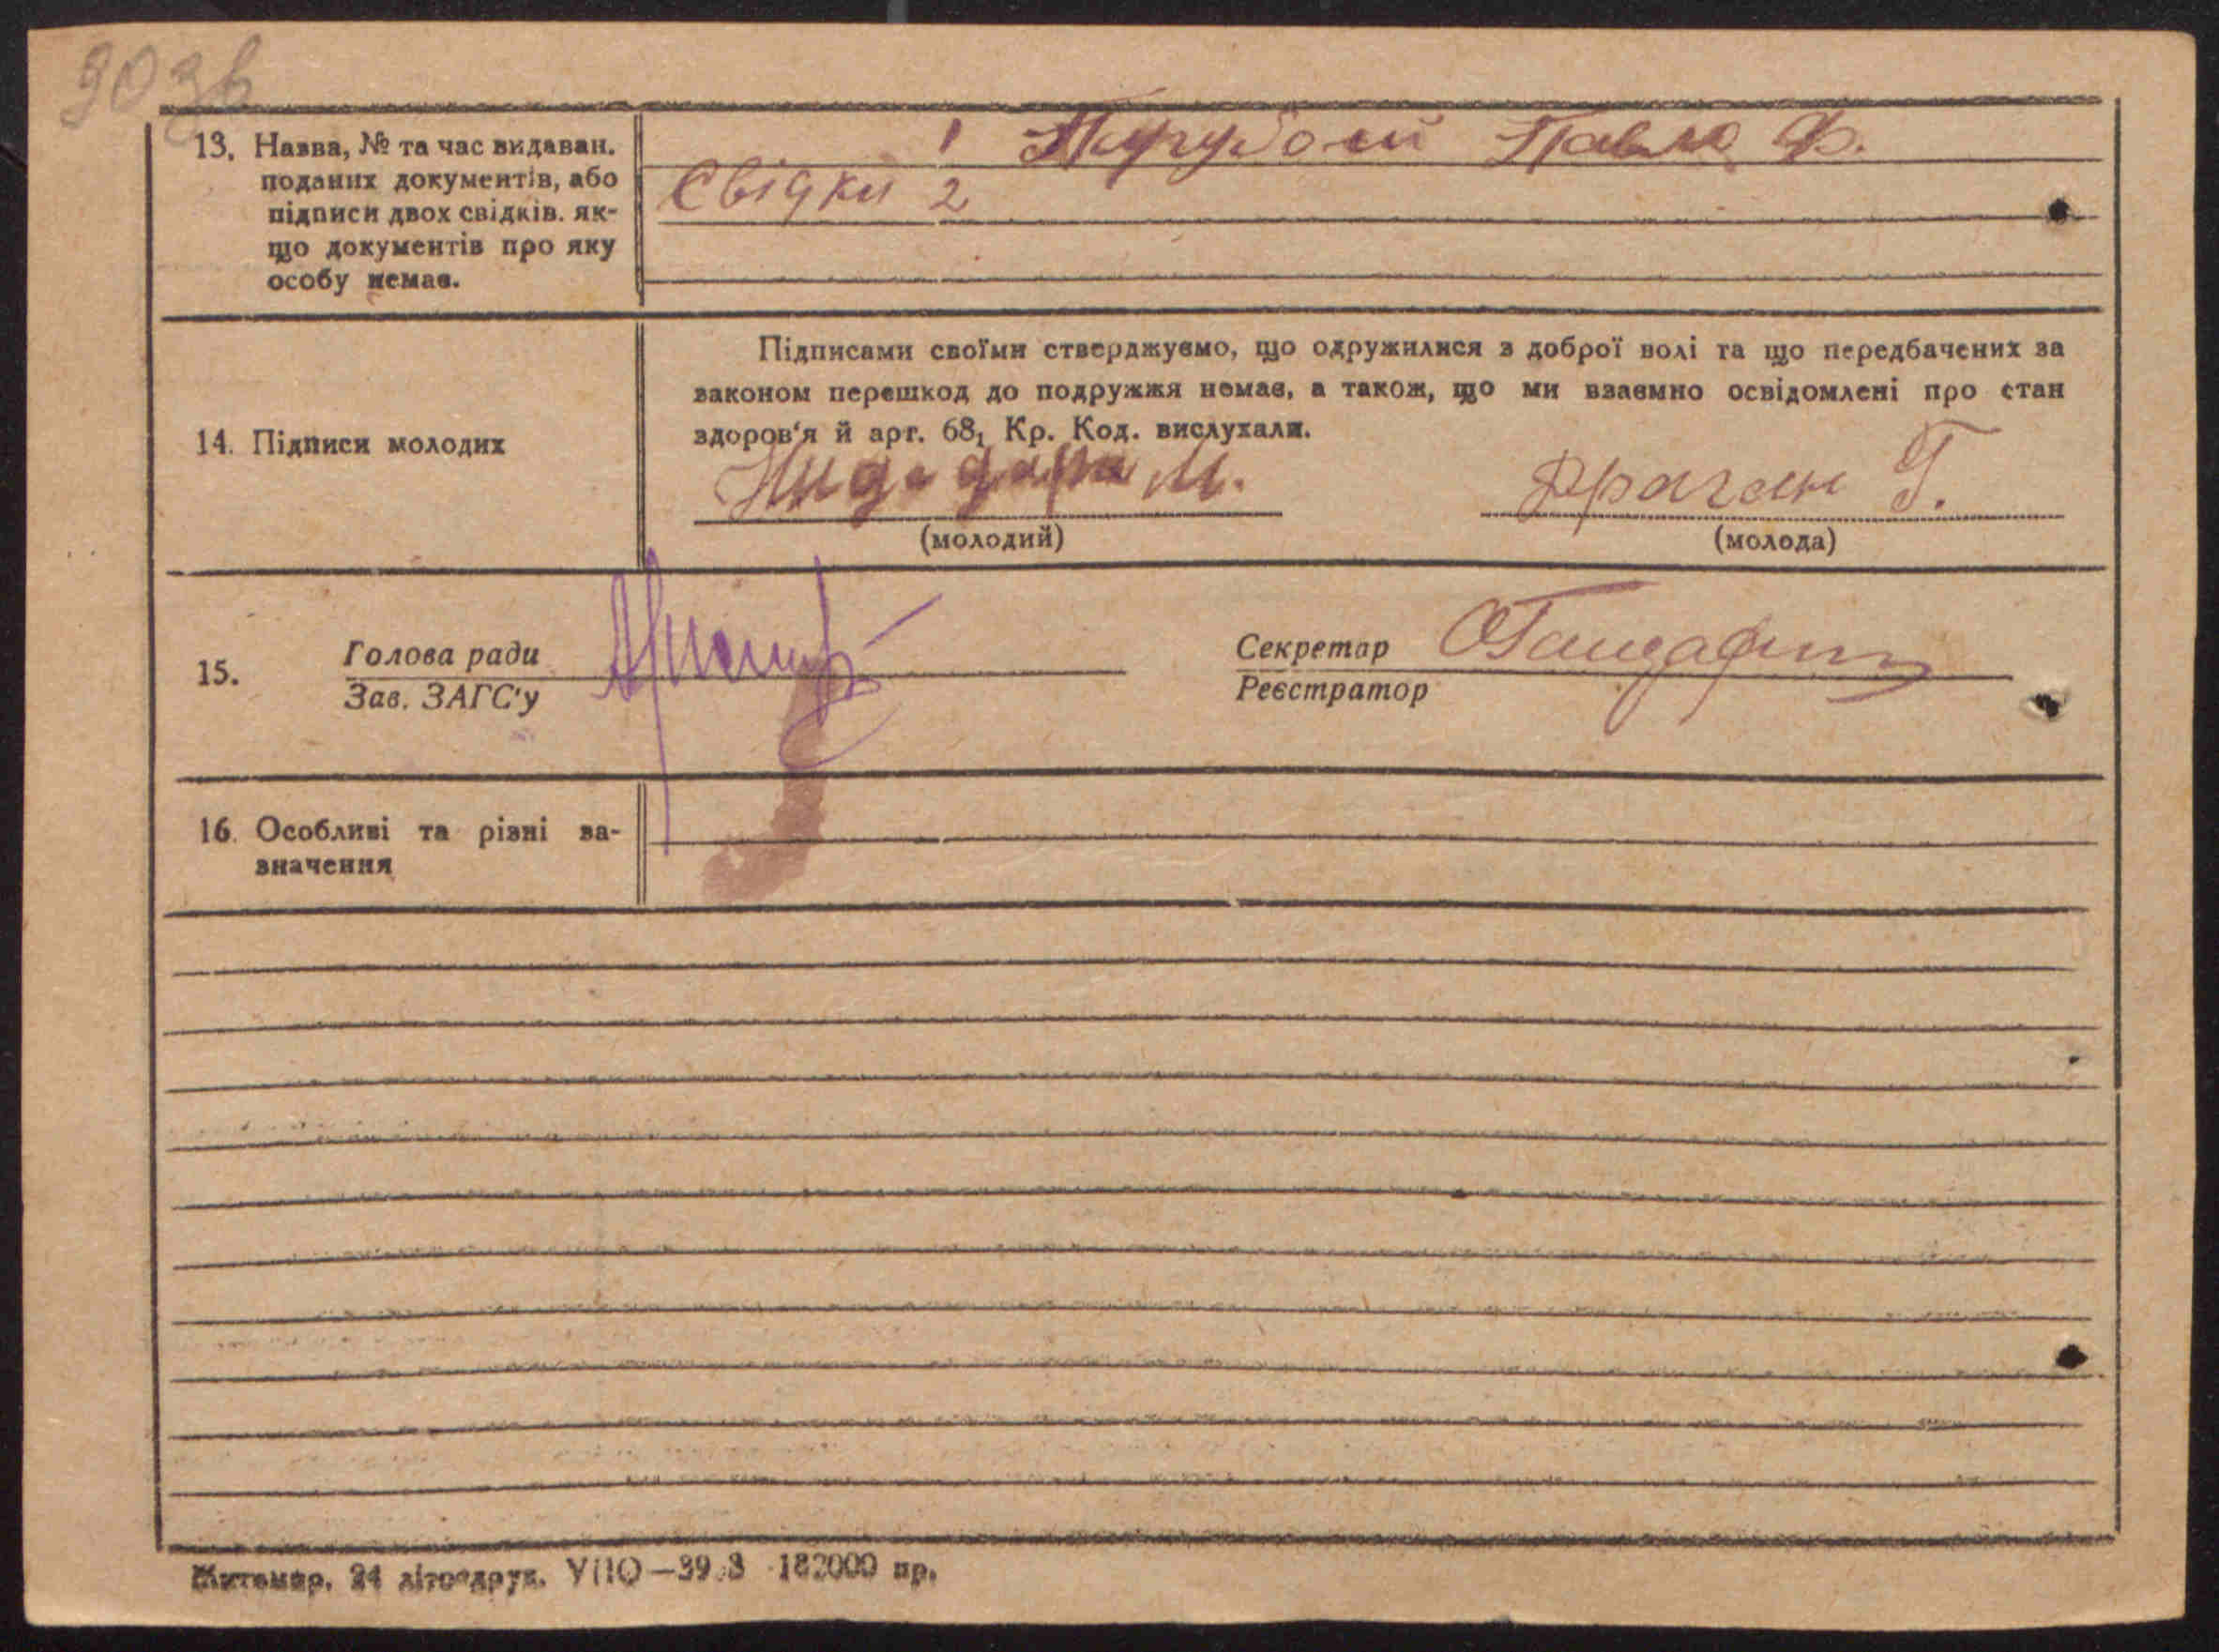 90зв
13. Назва, № та час видаван.
поданих документів, або
підписи двох свідків. як-
що документів про яку
особу немає.
1 Павло Ф.
Свідки 2
Підписами своїми стверджуємо, що одружилися з доброї волі та що передбачених за
законом перешкод до подружжя немає, а також, що ми взаємно освідомлені про стан
здоров'я й арт. 68₁ Кр. Код. вислухали.
14. Підписи молодих
М. Драган Г.
(молодий) (молода)
15. Голова ради Секретар
Зав. ЗАГС'у Реєстратор
16. Особливі та різні за-
значення
Житомир. 24 літодрук. УПО—39.3 182000 пр.